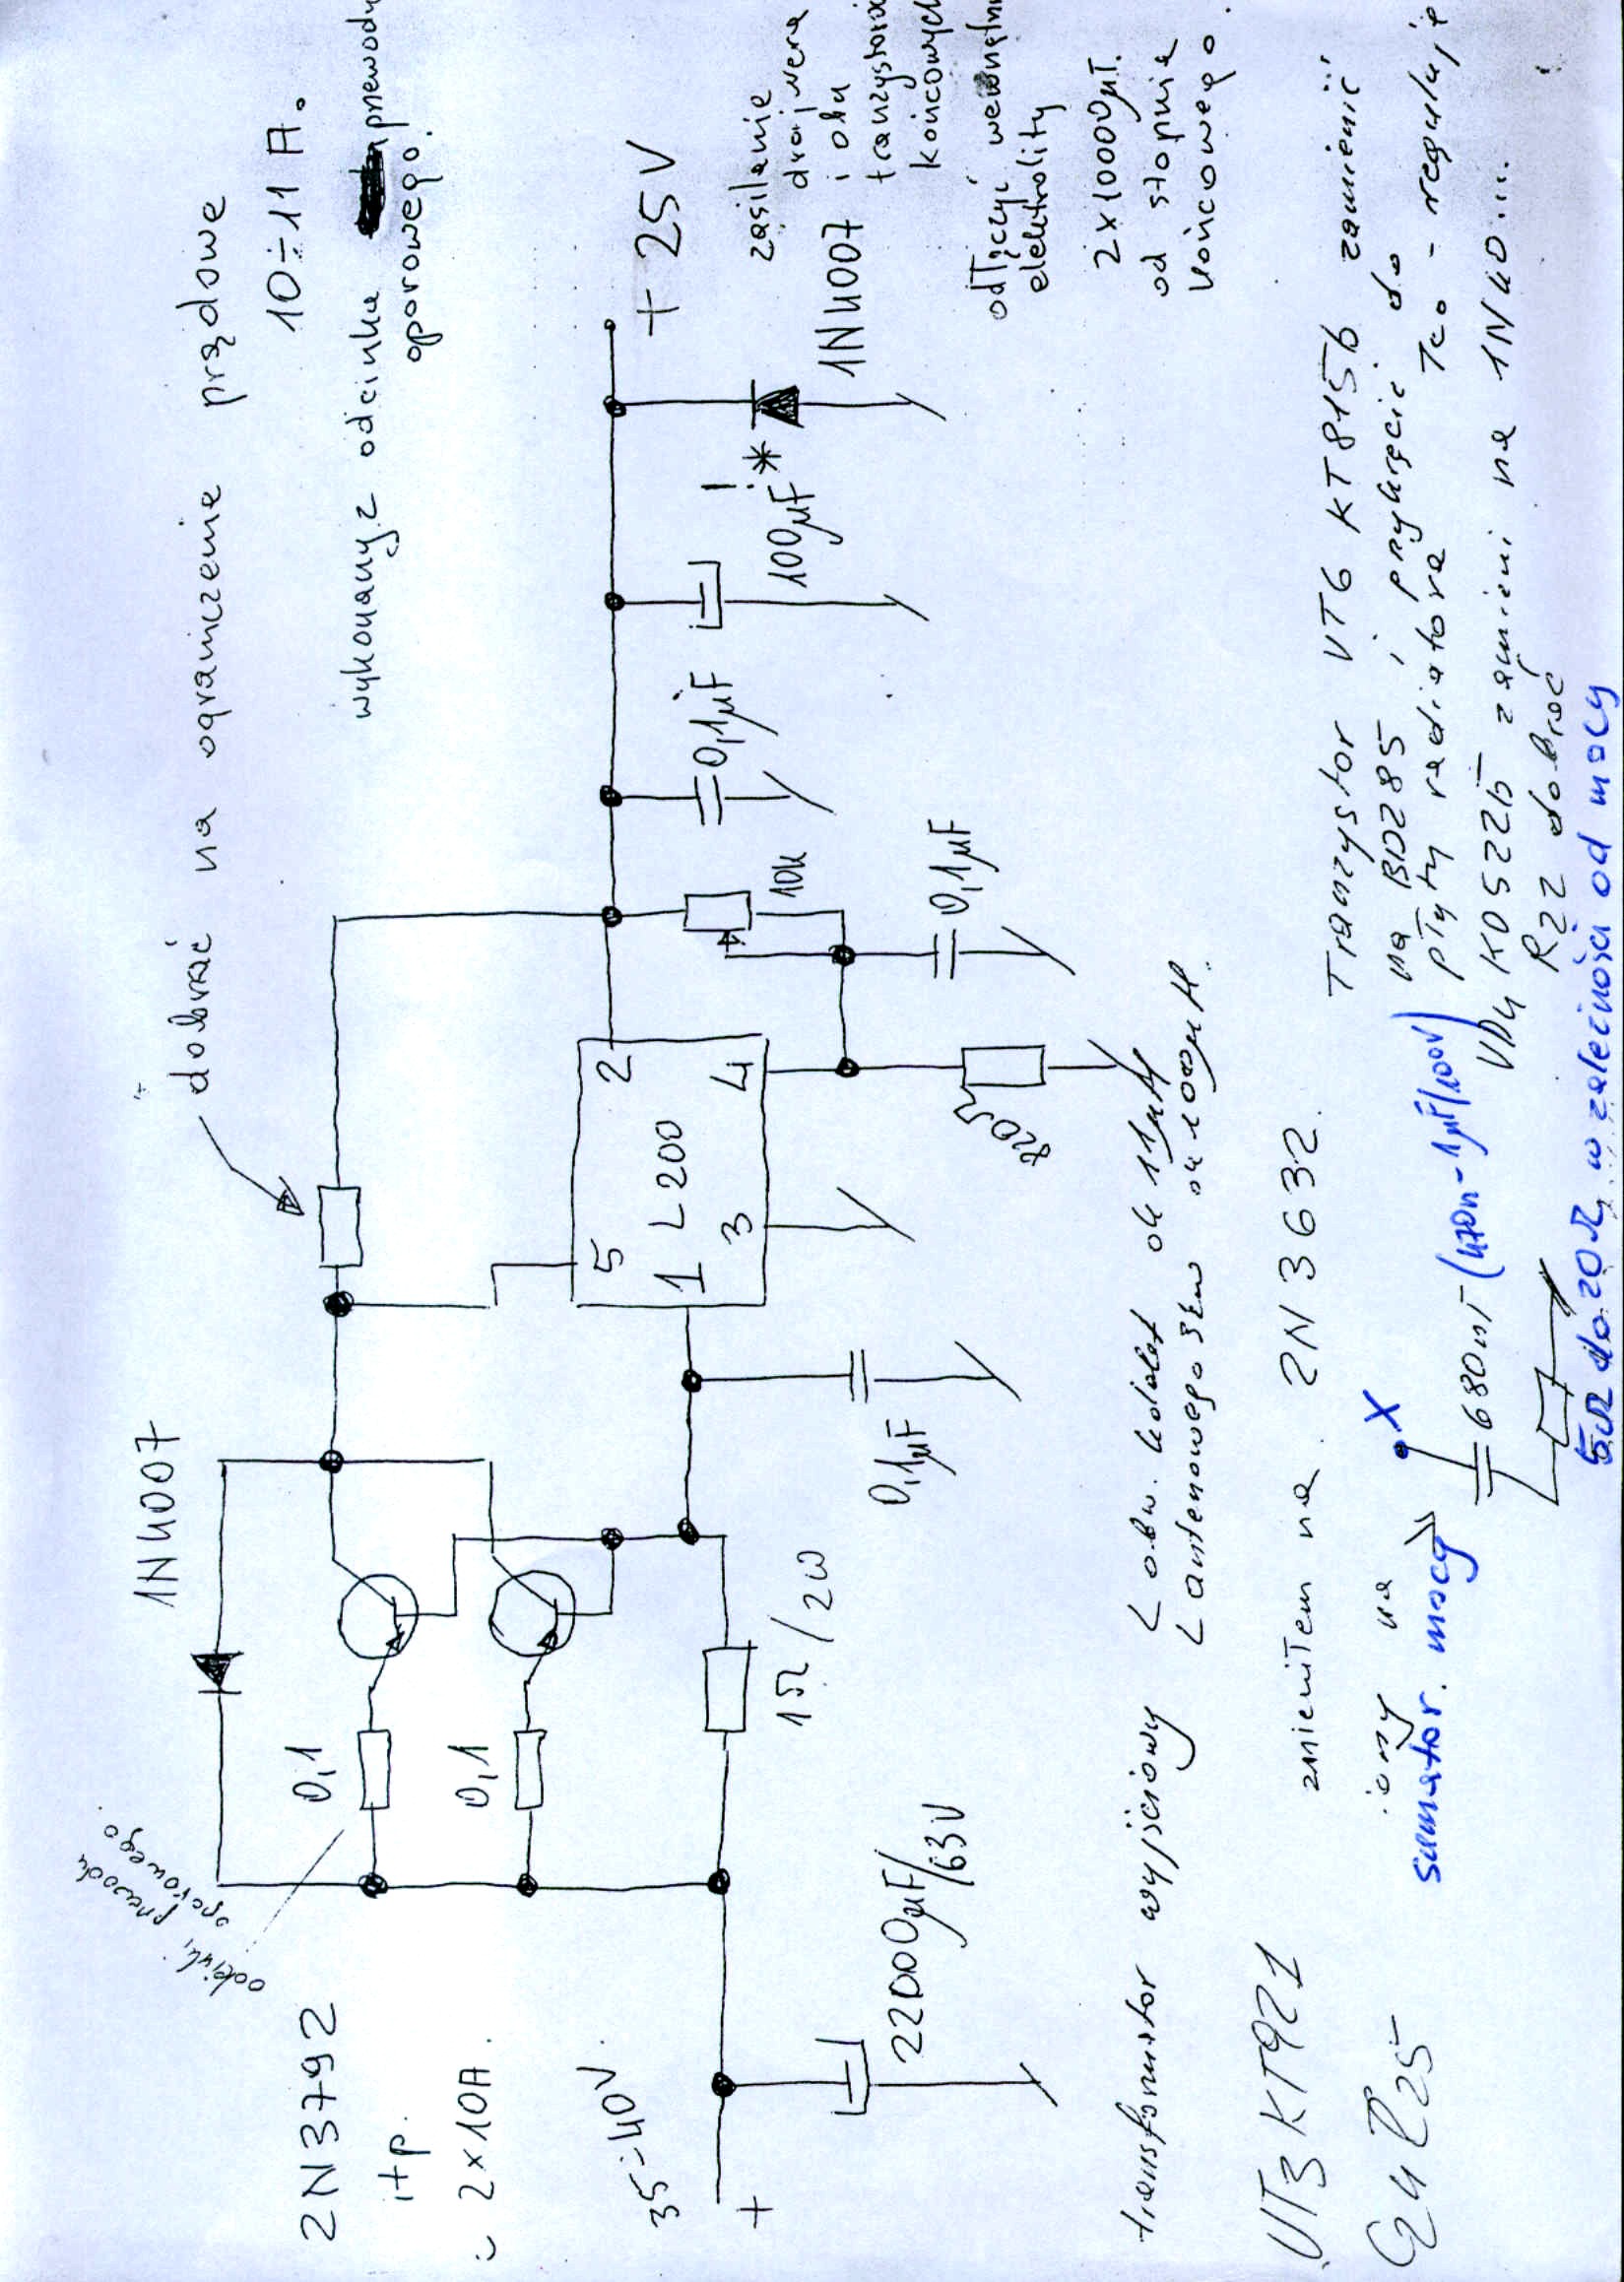 dobrać na ograniczenie prądowe
10÷11 A.
wykonany z odcinka przewodu
oporowego.
1N4007
odcinki
przewodu
oporowego
2N3792
itp.
2x10A.
0,1
0,1
35÷40V.
+
1Ω/2W
22000µF/63V
0,1µF
5
2
1
L200
3
4
820Ω
10k
0,1µF
0,1µF
100µF
! *
1N4007
+ 25V
zasilanie
drajwera
i obu
tranzystorów
końcowych
odłączyć wewnętrzn
elektrolity
2x1000µF.
od stopnia
końcowego.
transformator wyjściowy
L obw. kolekt ok 11µH
L antenowego ok 100µH.
VT3 KT921 zmieniłem na 2N3632.
C24 R25 iony na
sumator. mocy
X
680nF (470n-1µF/100V)
5Ω do 20Ω w zależności od mocy
Tranzystor VT6 KT815b zamienić
na BD285 i przykręcić do
płyty radiatora Tco - reguluje
VD4 KD522b zamieni na 1N40...
R22 dobrać